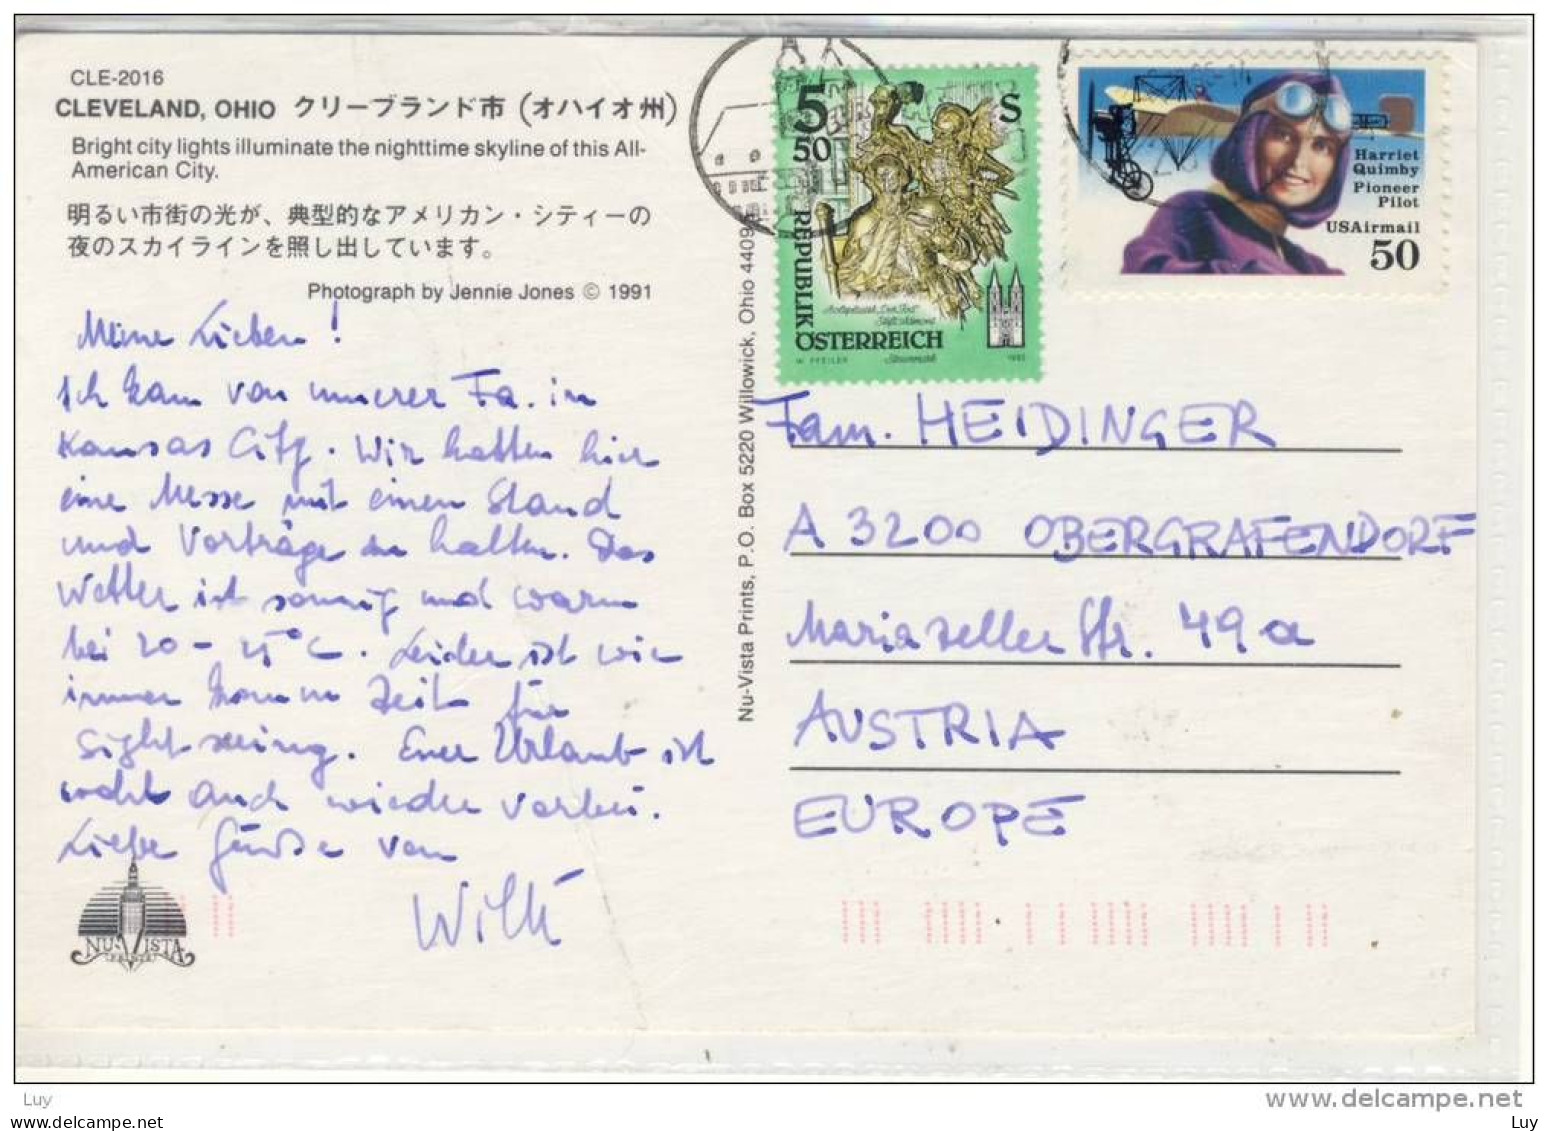 CLE-2016
CLEVELAND, OHIO クリーブランド市 (オハイオ州)
Bright city lights illuminate the nighttime skyline of this All-
American City.
明るい市街の光が、典型的なアメリカン・シティーの
夜のスカイラインを照し出しています。
Photograph by Jennie Jones © 1991
Meine Lieben!
Ich kam von unserer Fa. in
Kansas City. Wir hatten hier
eine Messe mit einen Stand
und Vorträge zu halten. Das
Wetter ist sonnig und warm
bei 20 - 25°C. Leider ist wie
immer kaum Zeit für
Sightseeing. Euer Urlaub ist
wohl auch wieder vorbei.
Liebe Grüße von
Willi
NU-VISTA
PRINTS
Nu-Vista Prints, P.O. Box 5220 Willowick, Ohio 4409
5 S
50
REPUBLIK
ÖSTERREICH
W. PFEILER
Steiermark
Harriet
Quimby
Pioneer
Pilot
USAirmail
50
Fam. HEIDINGER
A 3200 OBERGRAFENDORF
Mariazeller Str. 49a
AUSTRIA
EUROPE
Luy
www.delcampe.net
www.delcampe.net
Luy